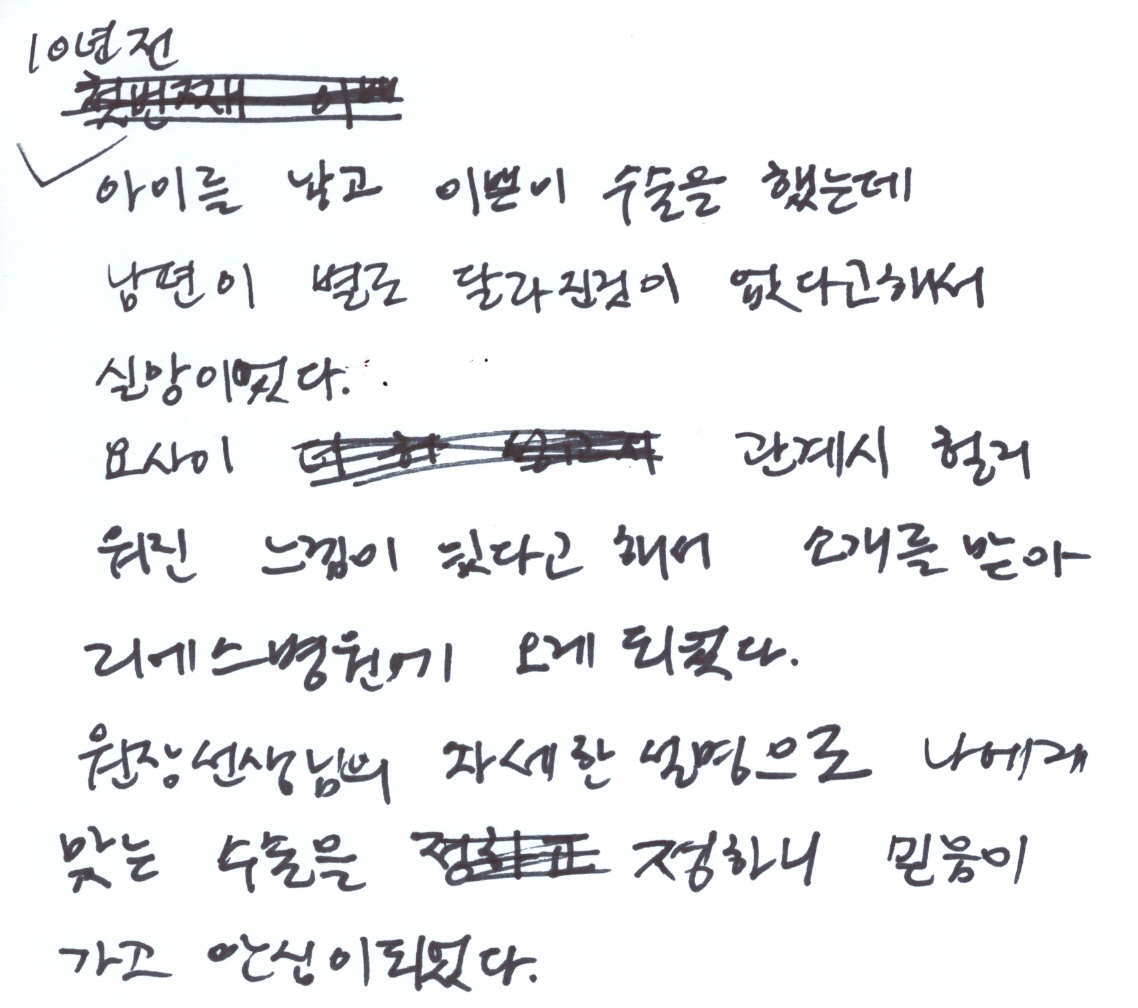 10년전
첫번째 이쁜
아이를 낳고 이쁜이 수술을 했는데
남편이 별로 달라진것이 없다고해서
실망이었다.
요사이 관계시 헐러
워진 느낌이 있다고 해서 소개를 받아
리에스병원에 오게 되었다.
원장선생님의 자세한 설명으로 나에게
맞는 수술을 정하고 정하니 믿음이
가고 안심이되었다.